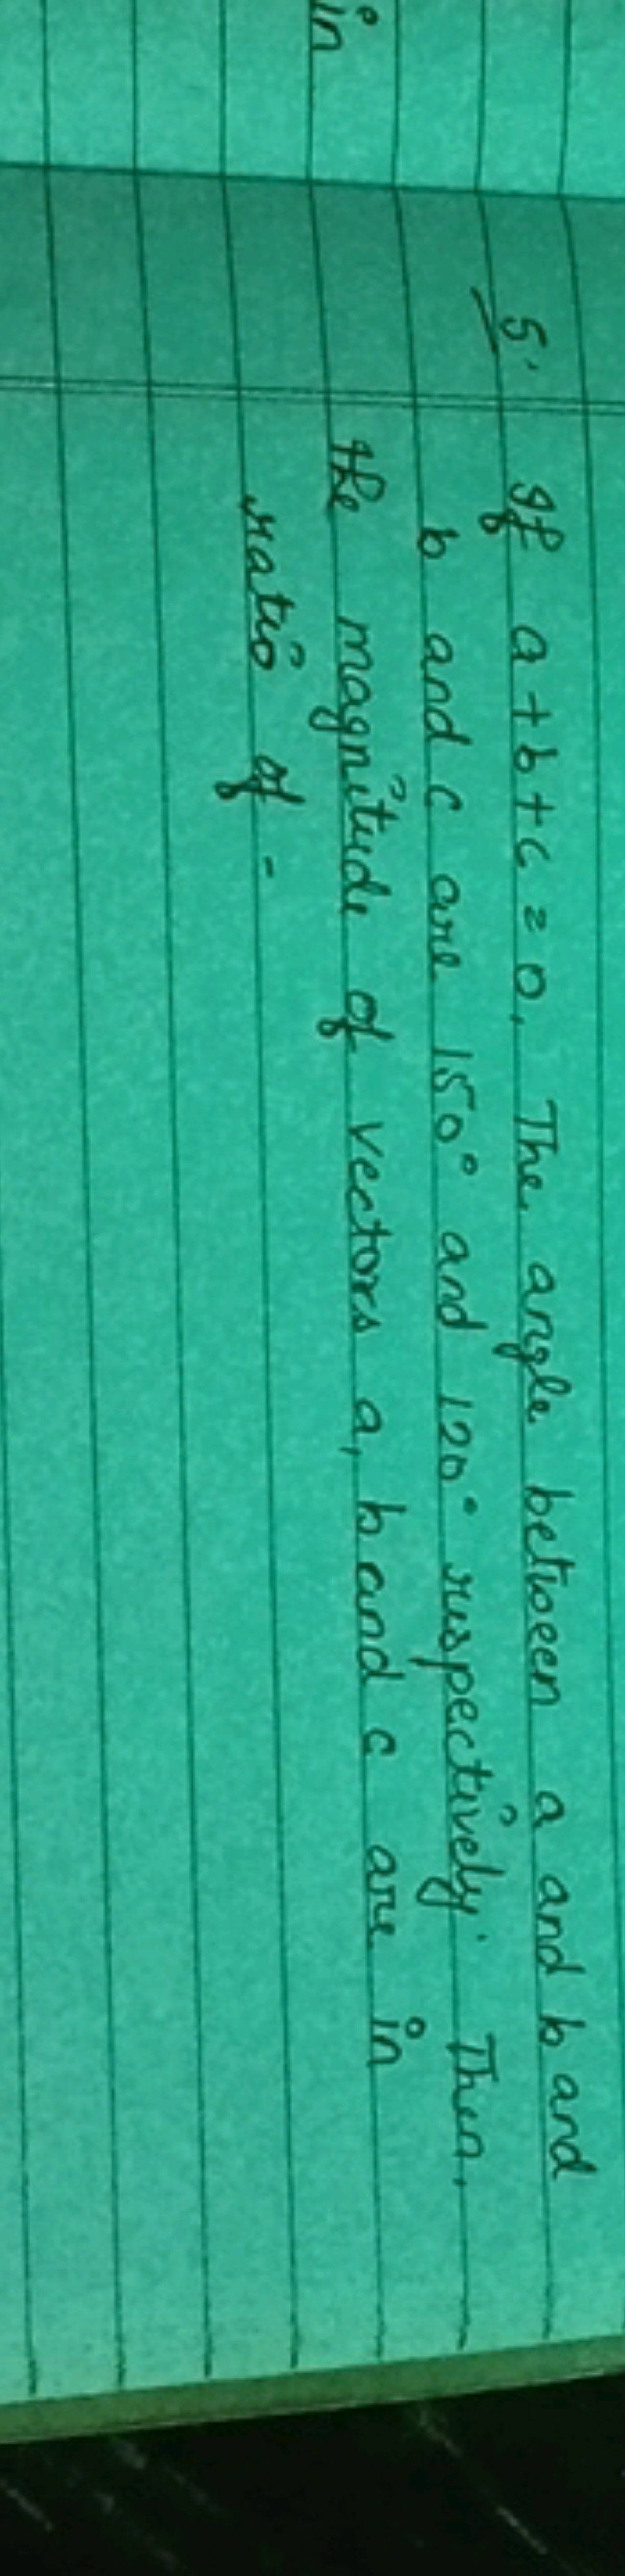 in
5. If a + b + c = 0. The angle between a and b and
b and c are 150° and 120° respectively. Then,
the magnitude of vectors a, b and c are in
ratio of -